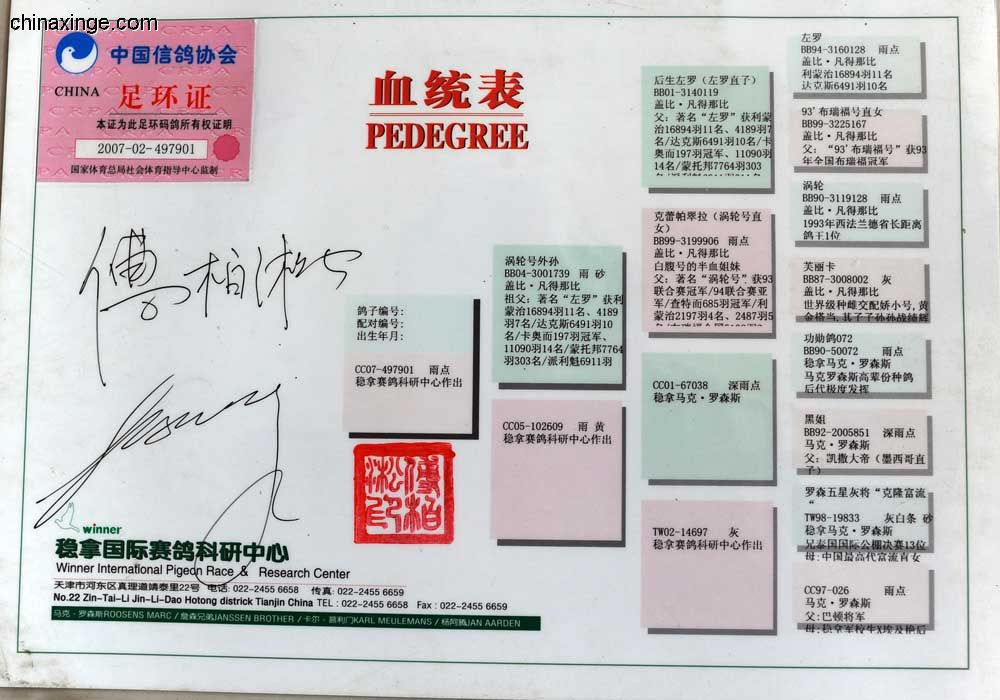 chinaxinge.com
中国信鸽协会
CHINA 足环证
本证为此足环码鸽所有权证明
2007-02-497901
国家体育总局社会体育指导中心监制
血统表
PEDEGREE
傅柏淞
鸽子编号:
配对编号:
出生年月:
CC07-497901 雨点
稳拿赛鸽科研中心作出
涡轮号外孙
BB04-3001739 雨 砂
盖比·凡得那比
祖父: 著名“左罗”获利
蒙治16894羽11名、4189
羽7名/达克斯6491羽10
名/卡奥而197羽冠军、
11090羽14名/蒙托邦7764
羽303名/派利魁6911羽
CC05-102609 雨 黄
稳拿赛鸽科研中心作出
后生左罗（左罗直子）
BB01-3140119
盖比·凡得那比
父: 著名“左罗”获利蒙
治16894羽11名、4189羽7
名/达克斯6491羽10名/卡
奥而197羽冠军、11090羽
14名/蒙托邦7764羽303
克蕾帕翠拉（涡轮号直
女）
BB99-3199906 雨点
盖比·凡得那比
白腹号的半血姐妹
父: 著名“涡轮号”获93
联合赛冠军/94联合赛亚
军/查特而685羽冠军/利
蒙治2197羽4名、2487羽5
CC01-67038 深雨点
稳拿马克·罗森斯
TW02-14697 灰
稳拿赛鸽科研中心作出
左罗
BB94-3160128 雨点
盖比·凡得那比
利蒙治16894羽11名
达克斯6491羽10名
93'布瑞福号直女
BB99-3225167
盖比·凡得那比
父: “93'布瑞福号”获93
年全国布瑞福冠军
涡轮
BB90-3119128 雨点
盖比·凡得那比
1993年西法兰德省长距离
鸽王1位
芙丽卡
BB87-3008002 灰
盖比·凡得那比
世界级种雌交配娇小号,黄
金搭当,其子子孙孙战绩辉
功勋鸽072
BB90-50072 雨点
稳拿马克·罗森斯
马克罗森斯高辈份种鸽
后代极度发挥
黑姐
BB92-2005851 深雨点
马克·罗森斯
父: 凯撒大帝（墨西哥直
子）
罗森五星灰将“克隆富流
“
TW98-19833 灰白条 砂
稳拿马克·罗森斯
兄泰国国际公棚决赛13位
母:中国最高代富流直女
CC97-026 雨点
马克·罗森斯
父:巴顿将军
傅柏淞印
winner
稳拿国际赛鸽科研中心
Winner International Pigeon Race & Research Center
天津市河东区真理道靖泰里22号 电话: 022-2455 6658 传真: 022-2455 6659
No.22 Zin-Tai-Li Jin-Li-Dao Hotong districk Tianjin China TEL : 022-2455 6658 Fax : 022-2455 6659
马克·罗森斯ROOSENS MARC / 詹森兄弟JANSSEN BROTHER / 卡尔·慕利门KARL MEULEMANS / 杨阿腾JAN AARDEN